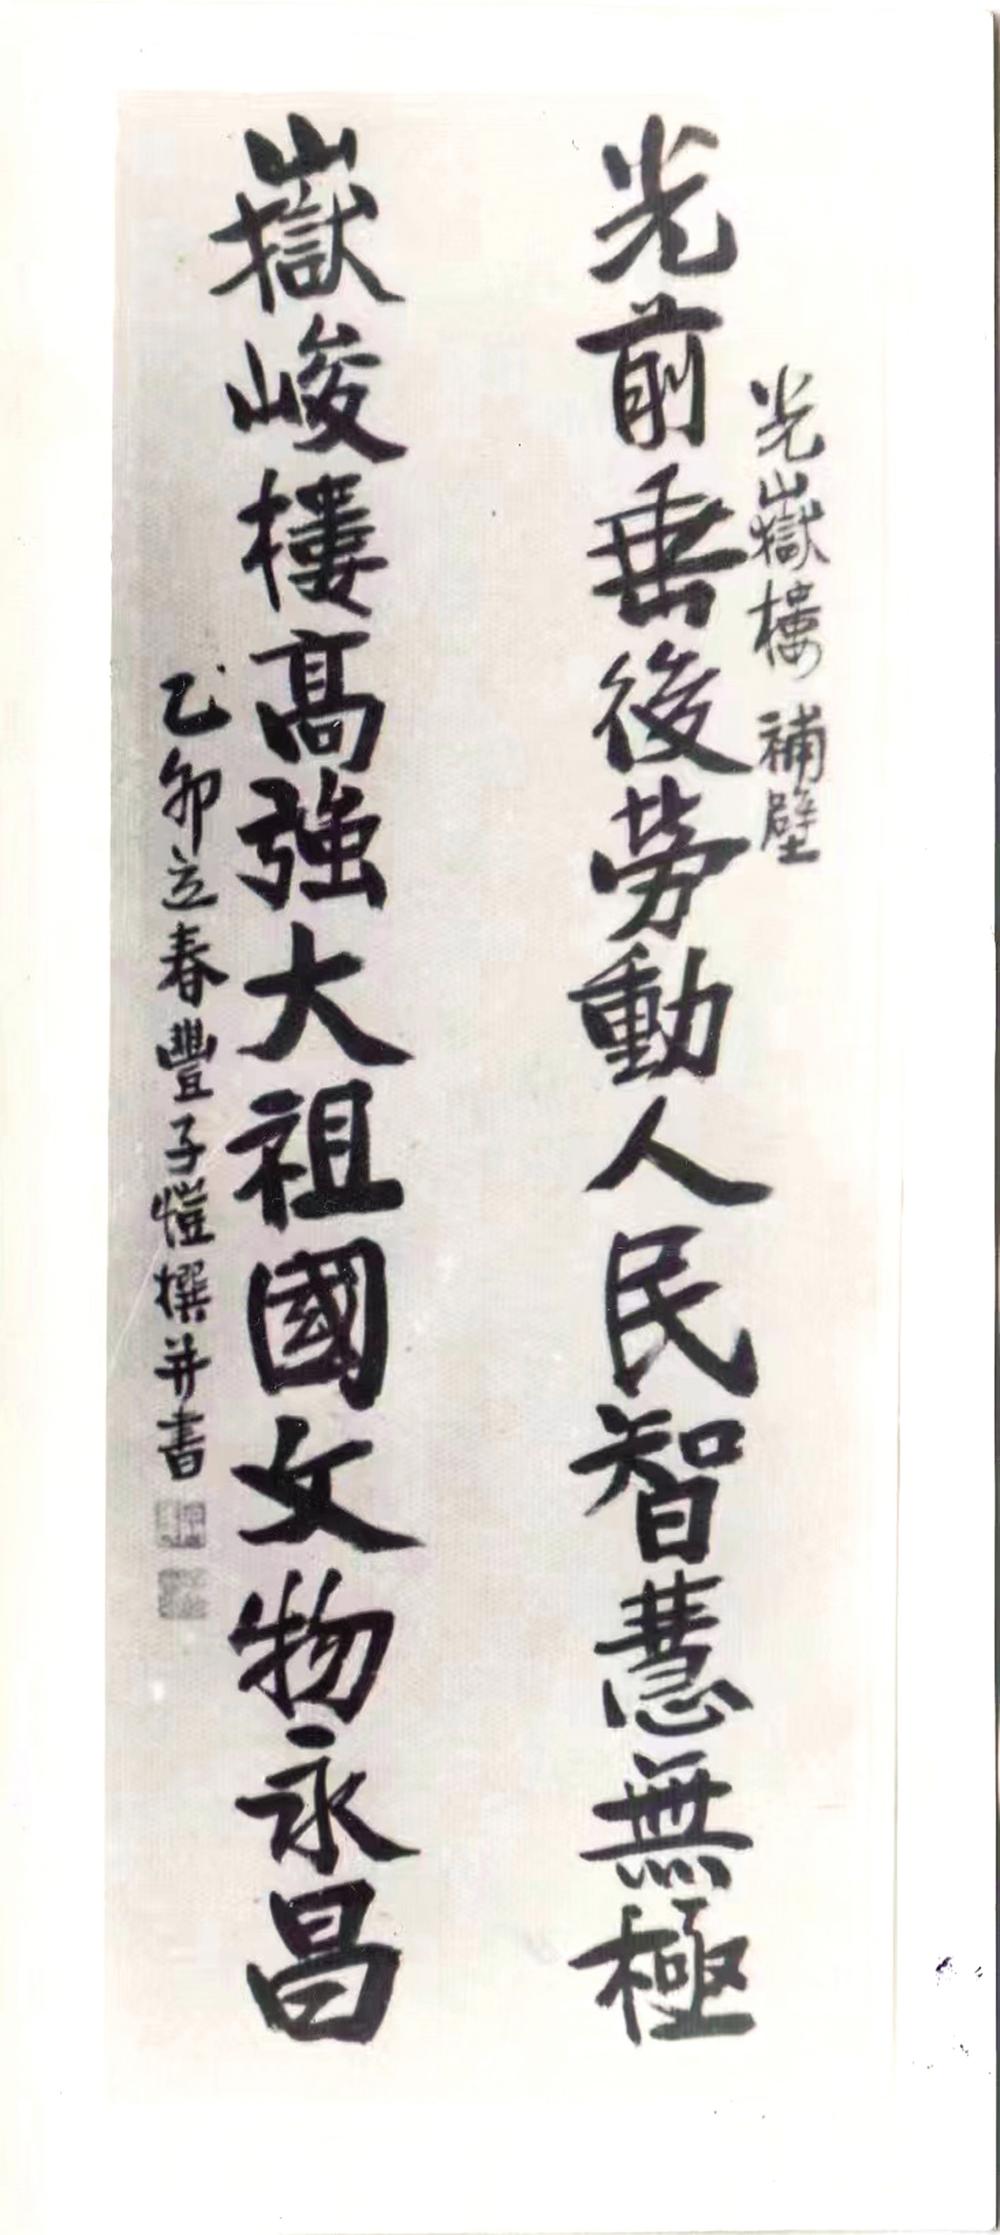 光嶽樓 補壁
光前垂後勞動人民智慧無極
嶽峻樓高強大祖國文物永昌
乙卯立春豐子愷撰并書